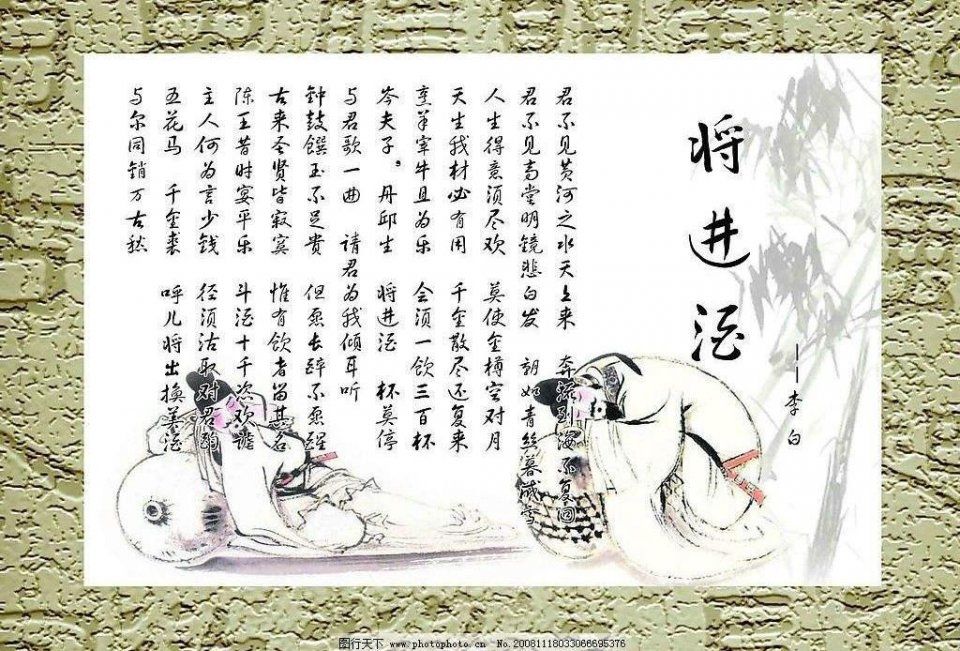 将进酒
——李白
君不见黄河之水天上来 奔流到海不复回
君不见高堂明镜悲白发 朝如青丝暮成雪
人生得意须尽欢 莫使金樽空对月
天生我材必有用 千金散尽还复来
烹羊宰牛且为乐 会须一饮三百杯
岑夫子。丹邱生 将进酒 杯莫停
与君歌一曲 请君为我倾耳听
钟鼓馔玉不足贵 但愿长醉不愿醒
古来圣贤皆寂寞 惟有饮者留其名
陈王昔时宴平乐 斗酒十千恣欢谑
主人何为言少钱 径须沽取对君酌
五花马 千金裘 呼儿将出换美酒
与尔同销万古愁
图行天下 www.photophoto.cn No.20081118033066695376